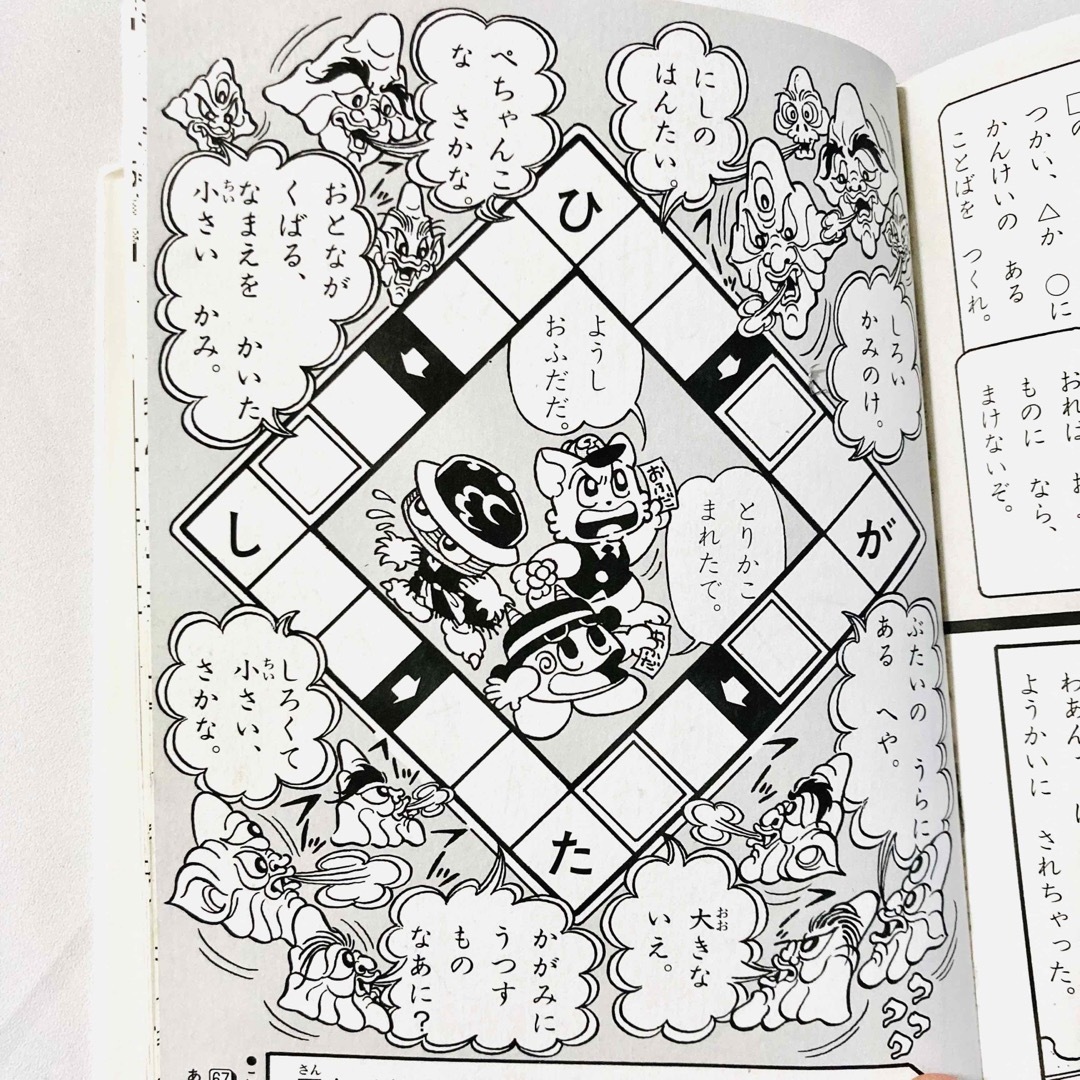 ぺちゃんこ
な さかな。
にしの
はんたい。
おとなが
くばる、
なまえを かいた
小さい かみ。
ちい
しろい
かみのけ。
ひ
し
が
た
ようし
おふだだ。
とりかこ
まれたで。
おふだ
おふだ
しろくて
小さい、
ちい
さかな。
ぶたいの うらに
ある へや。
かがみに
うつす
もの
なあに?
大きな
おお
いえ。
つかい、△か ○に
かんけいの ある
ことばを つくれ。
ものに なら、
まけないぞ。
ようかいに されちゃった。
さん
あ 67